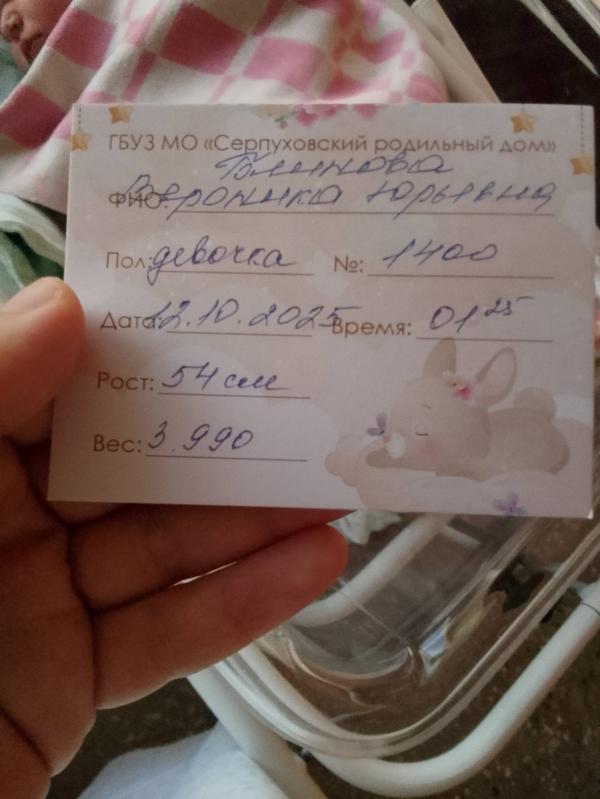 ГБУЗ МО «Серпуховский родильный дом»
Блинова
ФИО: Вероника Юрьевна
Пол: девочка №: 1400
Дата: 12.10.2025 Время: 01 25
Рост: 54 см
Вес: 3.990